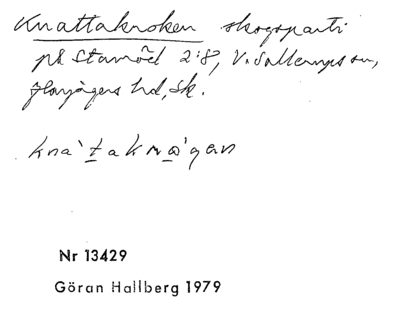 Knattakroken skogsparti
på Stamöd 2:8, V. Sallerups sn,
Harjagers hd, Sk.
kna`takrω`gen
Nr 13429
Göran Hallberg 1979